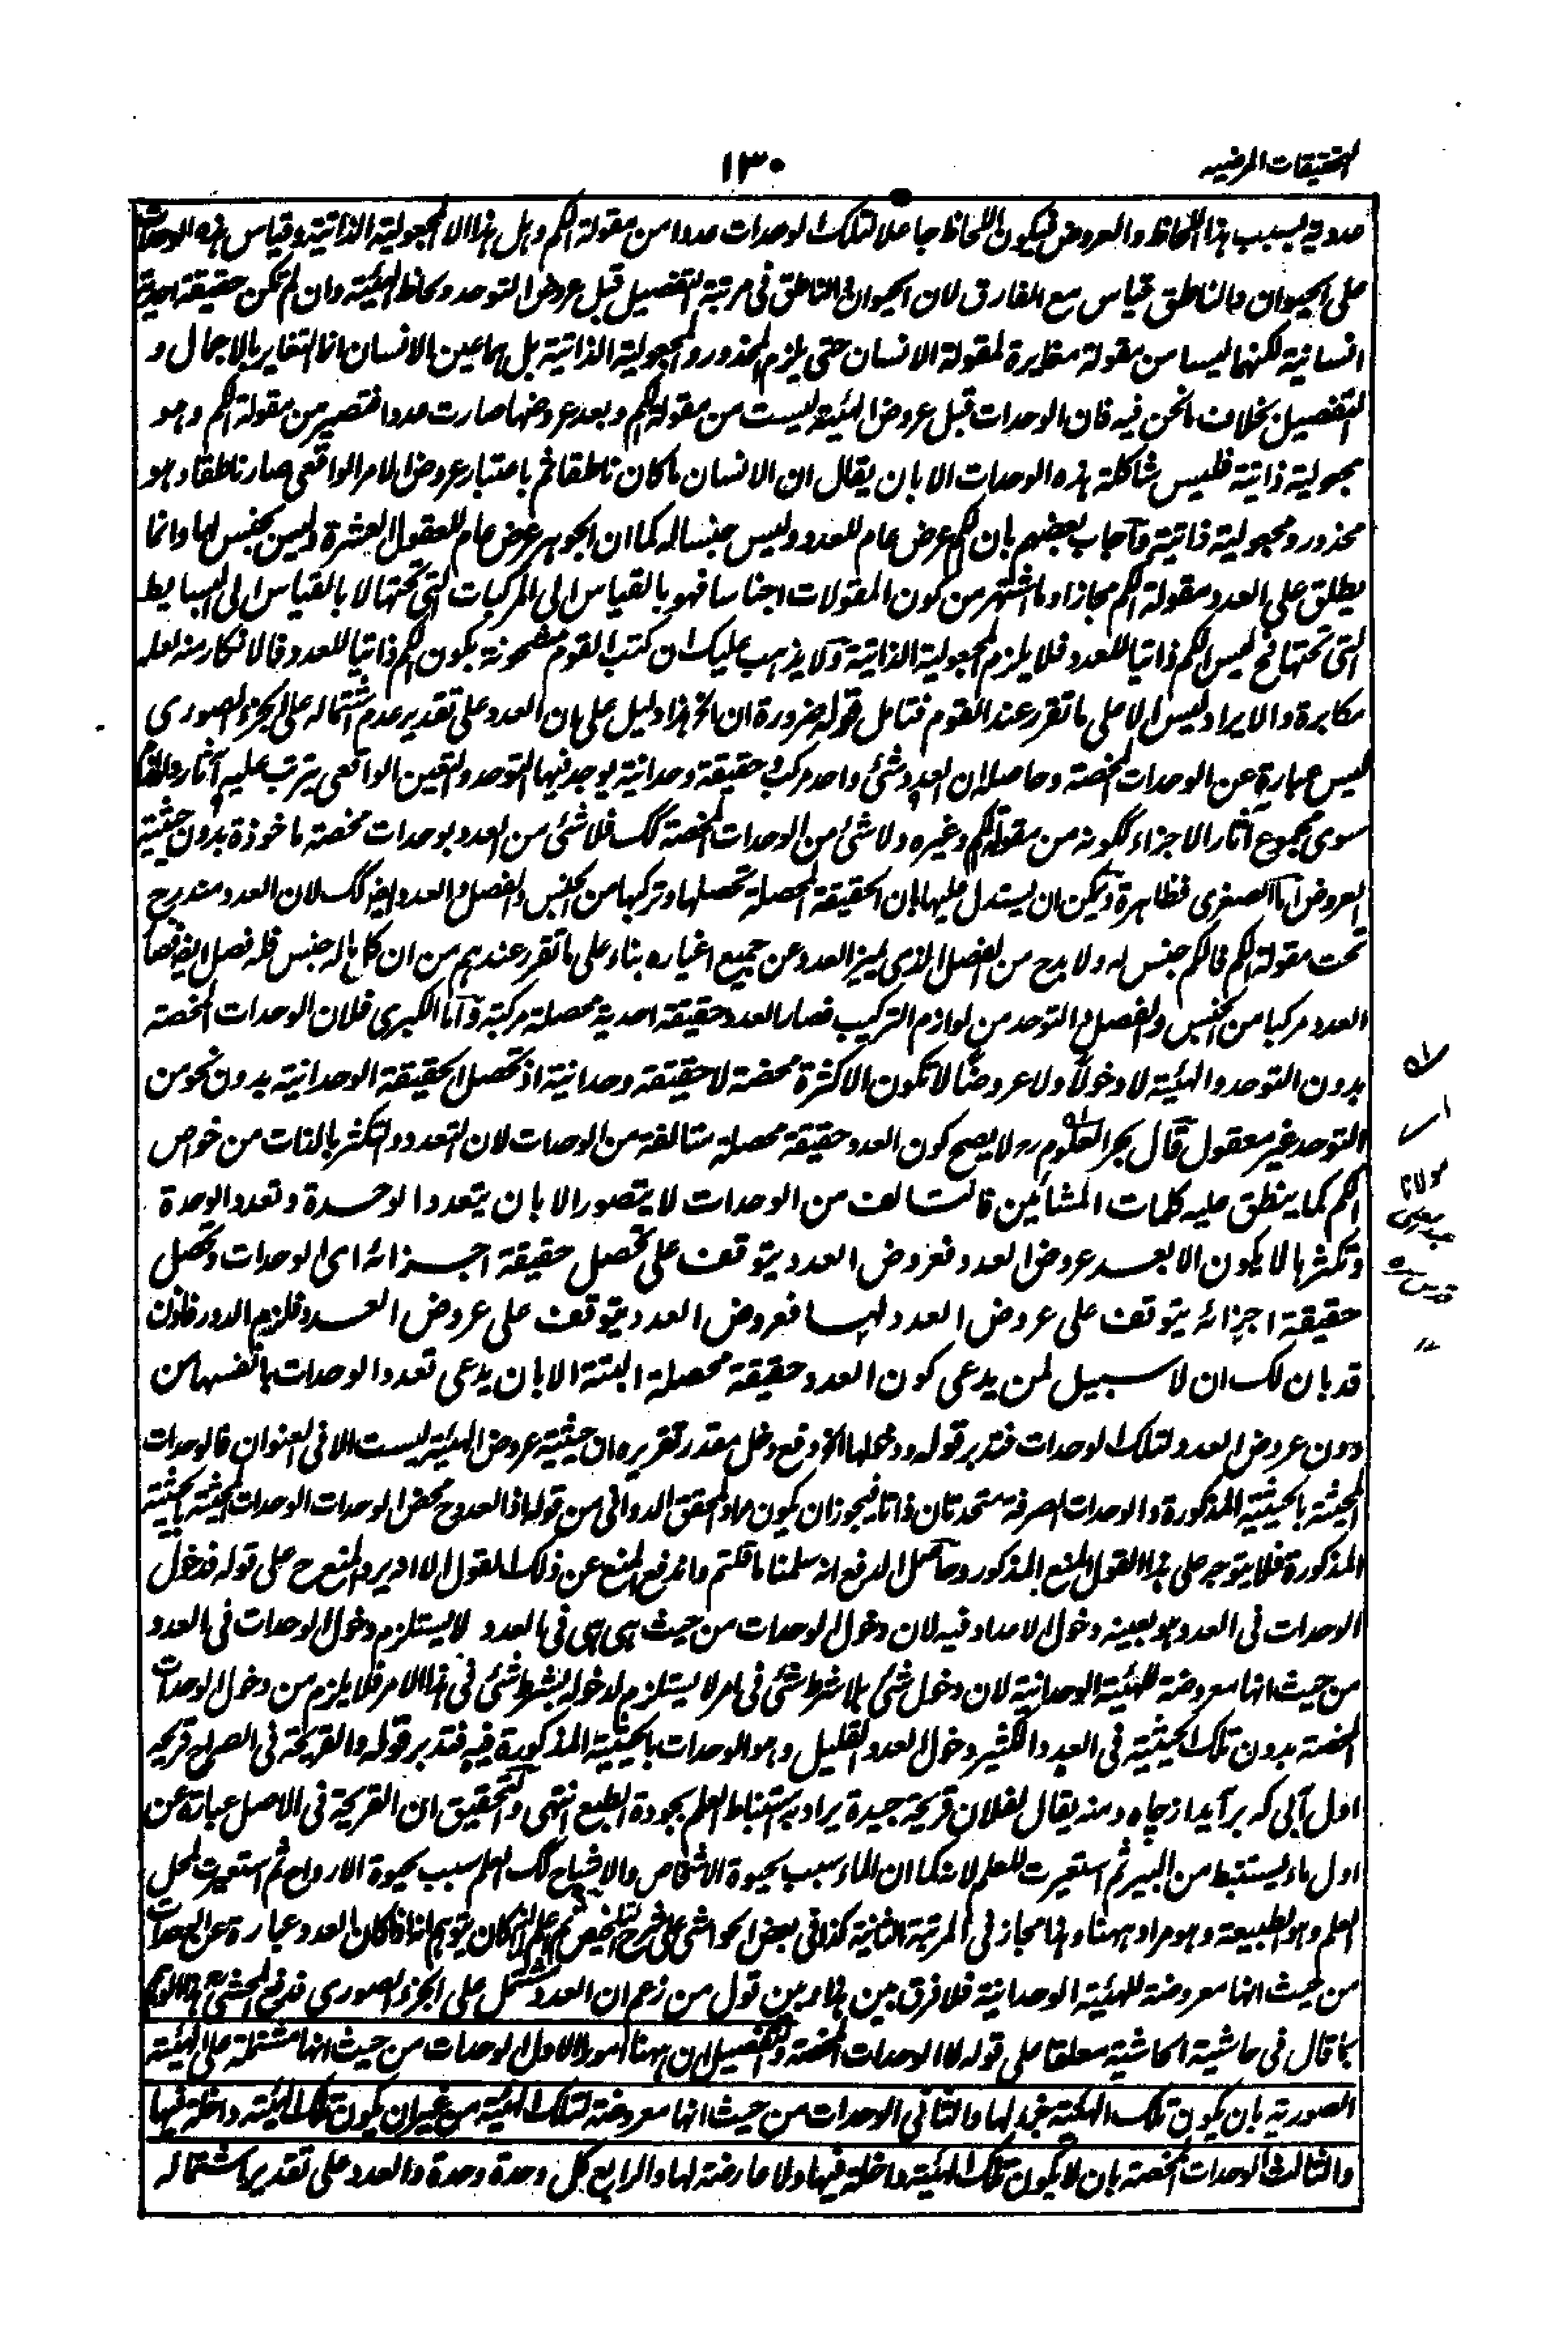 التحقيقات المرضيه
١٣٠
عدديه بسبب هذا اللحاظ والعروض فيكون اللحاظ جاعلا لتلك الوحدات عددا من مقولة الكم وهل هذا الا المجعولية الذاتية وقياس هذه الوحدات
على الحيوان والناطق قياس مع الفارق لان الحيوان والناطق فى مرتبة التفصيل قبل عروض التوحد ولحاظ الهيئية وان لم تكن حقيقة احدية
انسانية لكنهما ليسا من مقولة مغايرة لمقولة الانسان حتى يلزم المحذور والمجعولية الذاتية بل هما عين الانسان انما التغاير بالاجمال و
التفصيل بخلاف ما نحن فيه فان الوحدات قبل عروض الهيئية ليست من مقولة الكم وبعد عروضها صارت عددا فتصير من مقولة الكم وهو
مجعولية ذاتية فليس شاكلة هذه الوحدات الا بان يقال ان الانسان ما كان ناطقا ثم باعتبار عروض الامر الواقعى صار ناطقا وهو
محذور ومجعولية ذاتية وآجاب بعضهم بان الكم عرض عام للعدد وليس جنسا له كما ان الجوهر عرض عام للعقول العشرة وليس بجنس لها وانما
يطلق على العدد مقولة الكم مجازا وما اشتهر من كون المقولات اجناسا فهو بالقياس الى المركبات التى تحتها لا بالقياس الى البسايط
التى تحتها فح ليس الكم ذاتيا للعدد فلا يلزم المجعولية الذاتية ولا يذهب عليك ان كتب القوم مشحونة بكون الكم ذاتيا للعدد فالانكار منه لعله
مكابرة والايراد ليس الا على ما تقرر عند القوم فتامل قوله ضرورة ان الخ هذا دليل على ان العدد على تقدير عدم اشتماله على الجزء الصورى
ليس عبارة عن الوحدات المحضة وحاصله ان العدد شئ واحد مركب وحقيقة وحدانية يوجد فيها التوحد والتعين الواقعى يترتب عليه آثار ولوازم
سوى مجموع آثار الاجزاء ككونه من مقولة الكم وغيره ولا شئ من الوحدات المحضة كك فلا شئ من العدد بوحدات محضة ماخوذة بدون حيثية
العروض اما الصغرى فظاهرة ويمكن ان يستدل عليها بان الحقيقة المحصلة تحصلها وتركبها من الجنس والفصل والعدد ايضا كك لان العدد مندرج
تحت مقولة الكم فالكم جنس له ولا بد ح من الفصل الذى يميز العدد عن جميع اغياره بناء على ما تقرر عندهم من ان كل ماله جنس فله فصل ايضا فصار
العدد مركبا من الجنس والفصل والتوحد من لوازم التركيب فصار العدد حقيقة احدية محصلة مركبة وآما الكبرى فلان الوحدات المحضة
بدون التوحد والهيئية لا دخولا ولا عروضا لا تكون الا كثرة محضة لا حقيقة وحدانية اذ تحصل الحقيقة الوحدانية بدون نحو من
التوحد غير معقول قال بحر العلوم رح لا يصح كون العدد حقيقة محصلة متالفة من الوحدات لان التعدد والتكثر بالذات من خواص
الكم كما ينطق عليه كلمات المشائين فالتالف من الوحدات لا يتصور الا بان يتعدد الوحدة وتعدد الوحدة
وتكثرها لا يكون الا بعد عروض العدد فعروض العدد يتوقف على تحصل حقيقة اجزائه اى الوحدات وتحصل
حقيقة اجزائه يتوقف على عروض العدد لها فعروض العدد يتوقف على عروض العدد فلزم الدور فاذن
قد بان لك ان لا سبيل لمن يدعى كون العدد حقيقة محصلة البتة الا بان يدعى تعدد الوحدات بانفسها من
دون عروض العدد لتلك الوحدات فتدبر قوله ودخلها الخ دفع دخل مقدر تقريره ان حيثية عروض الهيئية ليست الا فى العنوان فالوحدات
المحيثة بالحيثية المذكورة والوحدات الصرفة متحدتان ذاتا فيجوز ان يكون مراد المحقق الدوانى من قوله اذ العدد ح محض الوحدات الوحدات المحيثة بالحيثية
المذكورة فلا يتوجه على هذا القول المنع المذكور وحاصل الدفع انه سلمنا ما قلتم واندفع المنع عن ذلك القول الا انه يرد المنع ح على قوله فدخول
الوحدات فى العدد هو بعينه دخول الاعداد فيه لان دخول الوحدات من حيث هى هى فى العدد لا يستلزم دخول الوحدات فى العدد
من حيث انها معروضة للهيئية الوحدانية لان دخول شئ بلا شرط شئ فى امر لا يستلزم لدخوله بشرط شئ فى هذا الامر فلا يلزم من دخول الوحدات
المحضة بدون تلك الحيثية فى العدد الكثير دخول العدد القليل وهو الوحدات بالحيثية المذكورة فيه فتدبر قوله والقريحة فى الصراح قريحه
اول آبى كه برآيد از چاه ومنه يقال لفلان قريحة جيدة يراد به استنباط العلم بجودة الطبع انتهى والتحقيق ان القريحة فى الاصل عبارة عن
اول ماء يستنبط من البير ثم استعيرت للعلم لانه كما ان الماء سبب لحيوة الاشخاص والاشباح كك العلم سبب لحيوة الارواح ثم استعيرت لمحل
العلم وهو الطبيعة وهو مراد ههنا وانها مجاز فى المرتبة الثانية كذا فى بعض الحواشى على شرح التلخيص ثم اعلم انه كان يتوهم انه اذا كان العدد عبارة عن الوحدات
من حيث انها معروضة للهيئية الوحدانية فلا فرق بين هذا وبين قول من زعم ان العدد مشتمل على الجزء الصورى فدفع المحشى رح هذا التوهم
بما قال فى حاشية الحاشية معلقا على قوله لا الوحدات المحضة والتفصيل ان ههنا امورا الاول الوحدات من حيث انها مشتملة على الهيئية
الصورية بان يكون تلك الهيئية جزء لها والثانى الوحدات من حيث انها معروضة لتلك الهيئية من غير ان يكون تلك الهيئية داخلة فيها
والثالث الوحدات المحضة بان لا يكون تلك الهيئية داخلة فيها ولا عارضة لها والرابع كل وحدة وحدة والعدد على تقدير اشتماله
مولانا